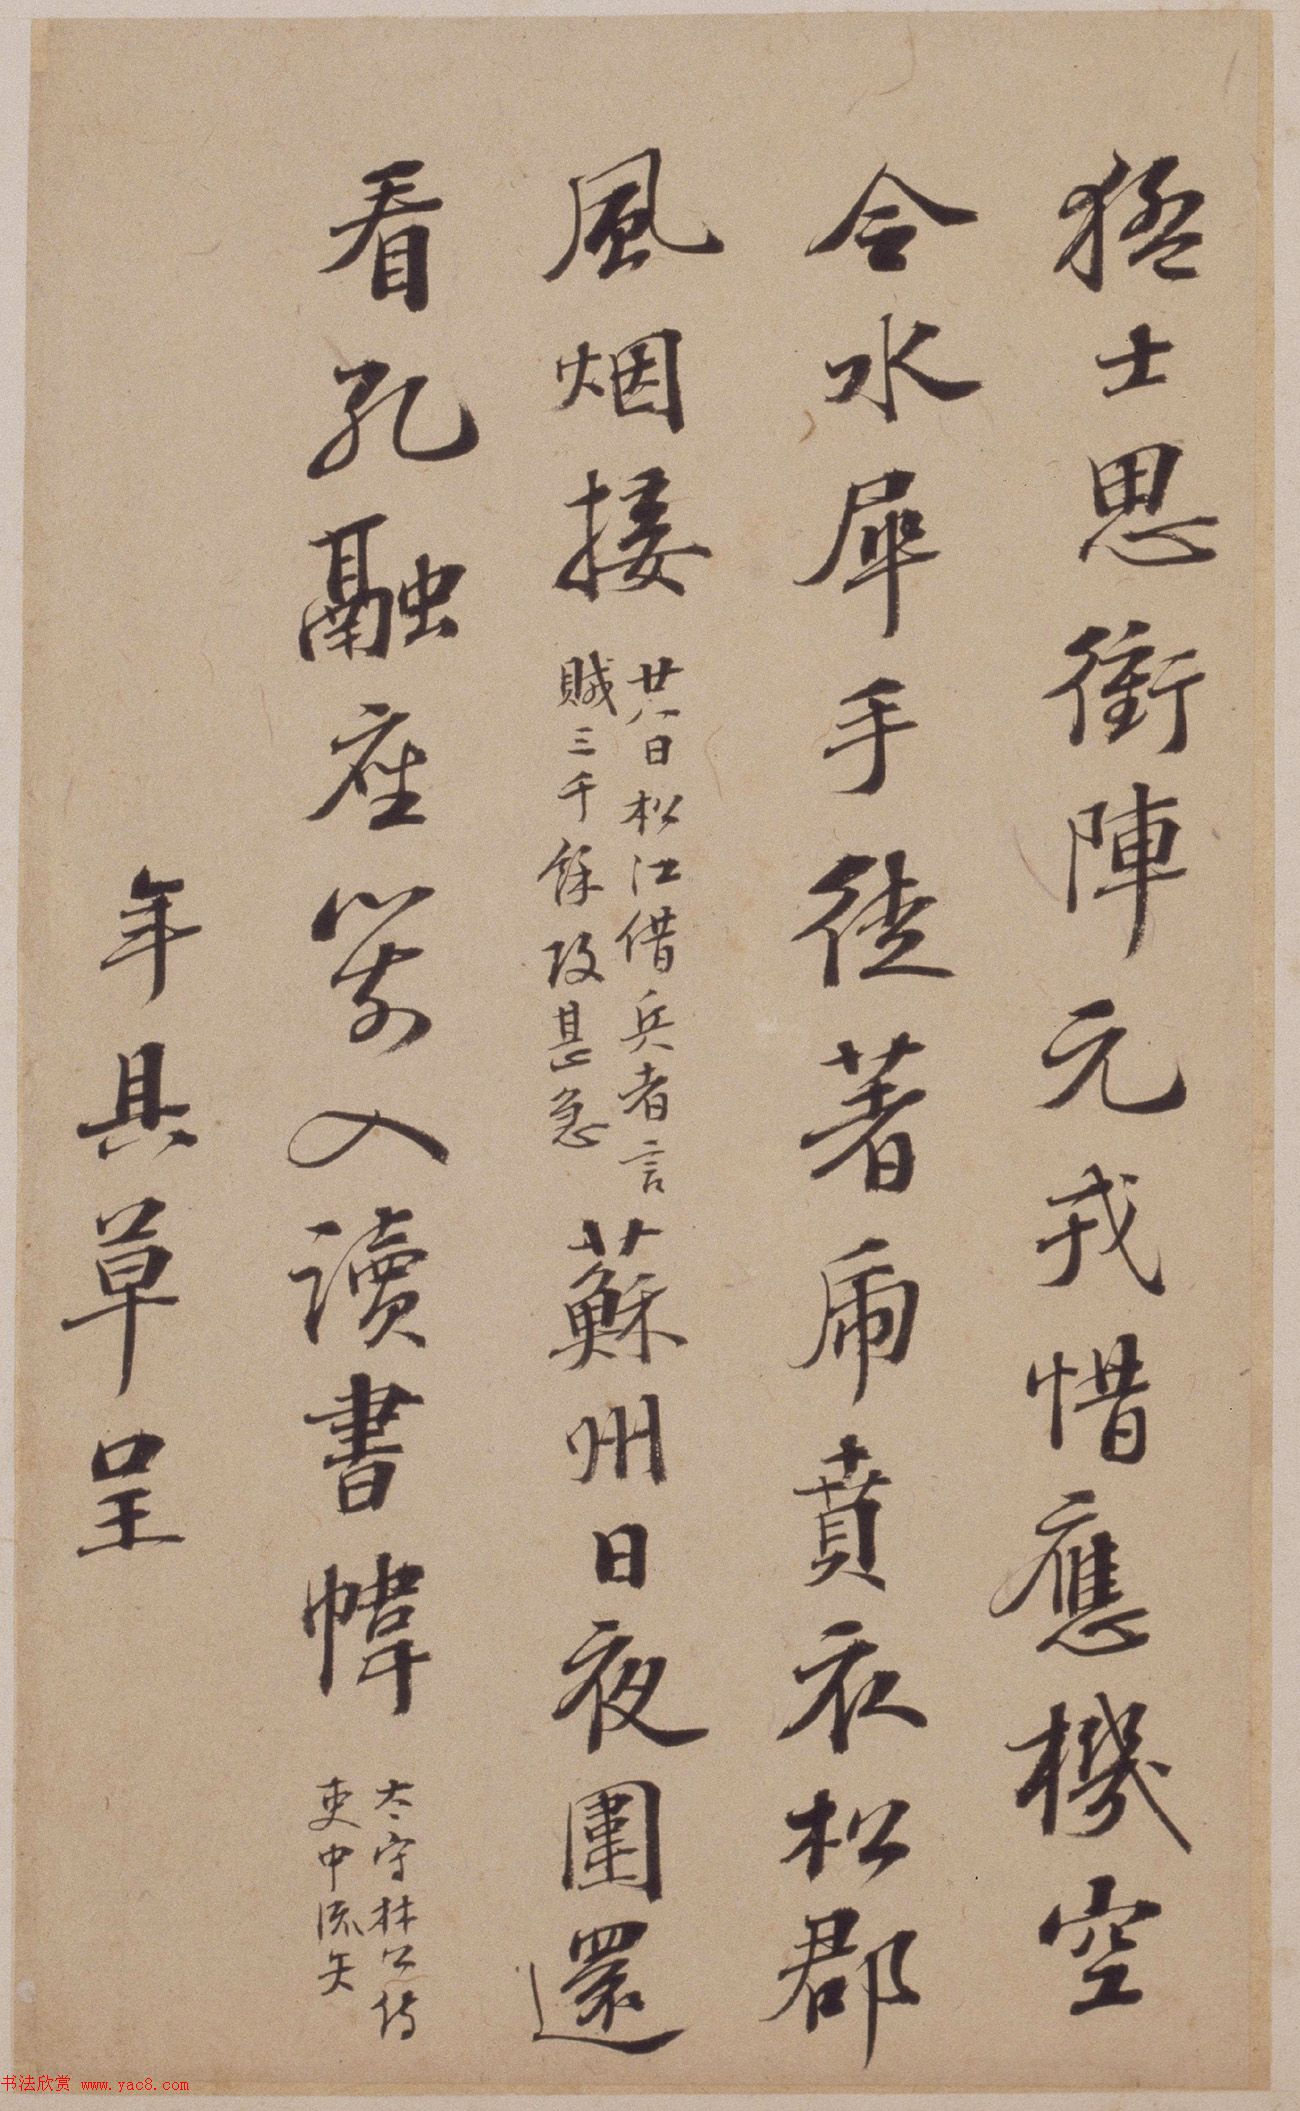 猛士思衝陣元戎惜應機空
令水犀手徒著虎賁衣松郡
風烟接
廿八日松江借兵者言
賊三千餘攻甚急
蘇州日夜圍還
看孔融座箭入讀書幃
太守林公侍
吏中流矢
年具草呈
书法欣赏 www.yac8.com